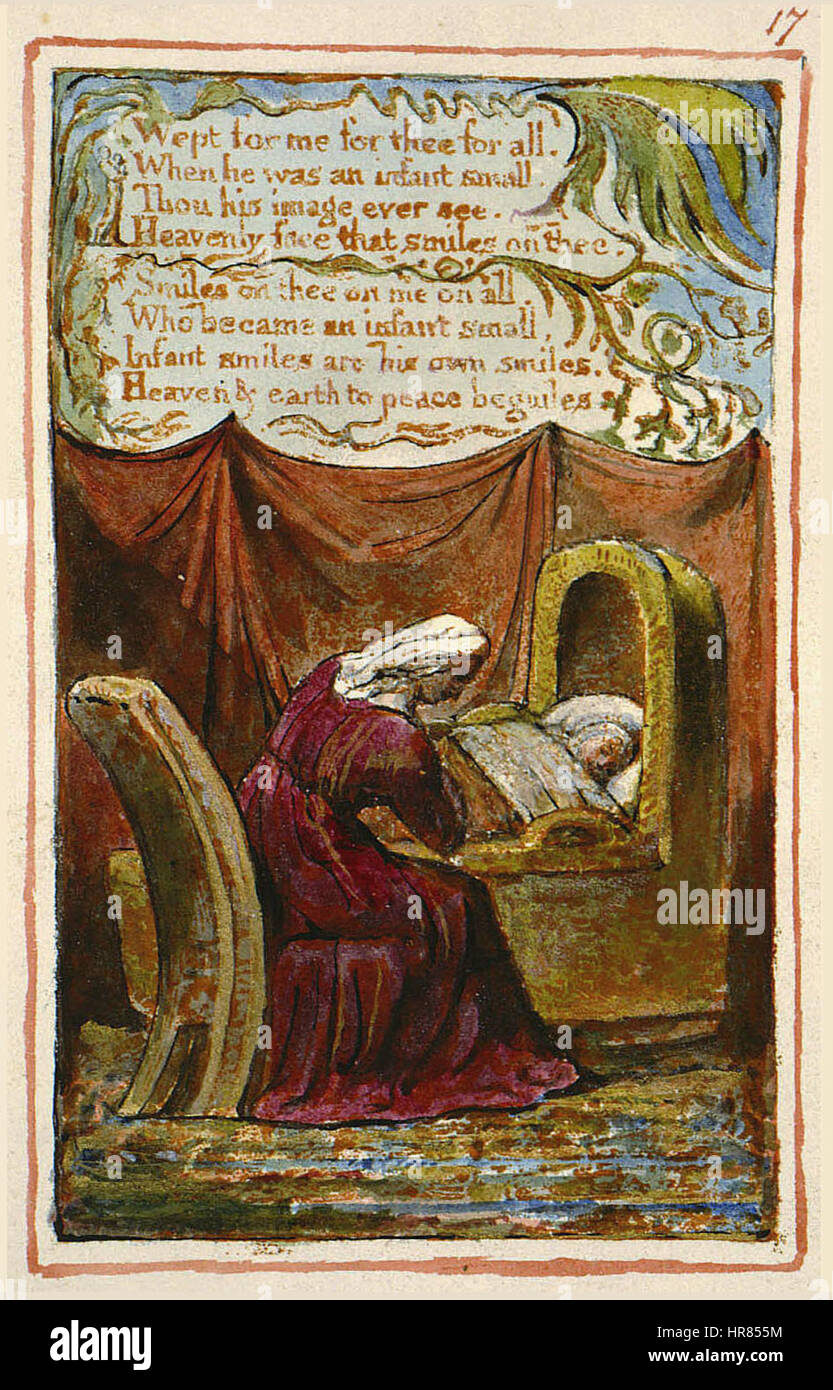 17
Wept for me for thee for all.
When he was an infant small.
Thou his image ever see.
Heavenly face that smiles on thee.
Smiles on thee on me on all.
Who became an infant small,
Infant smiles are his own smiles.
Heaven & earth to peace beguiles.
a
alamy stock photo
a
a
a
a
a
alamy
a
a
a
alamy
Image ID: HR855M
www.alamy.com